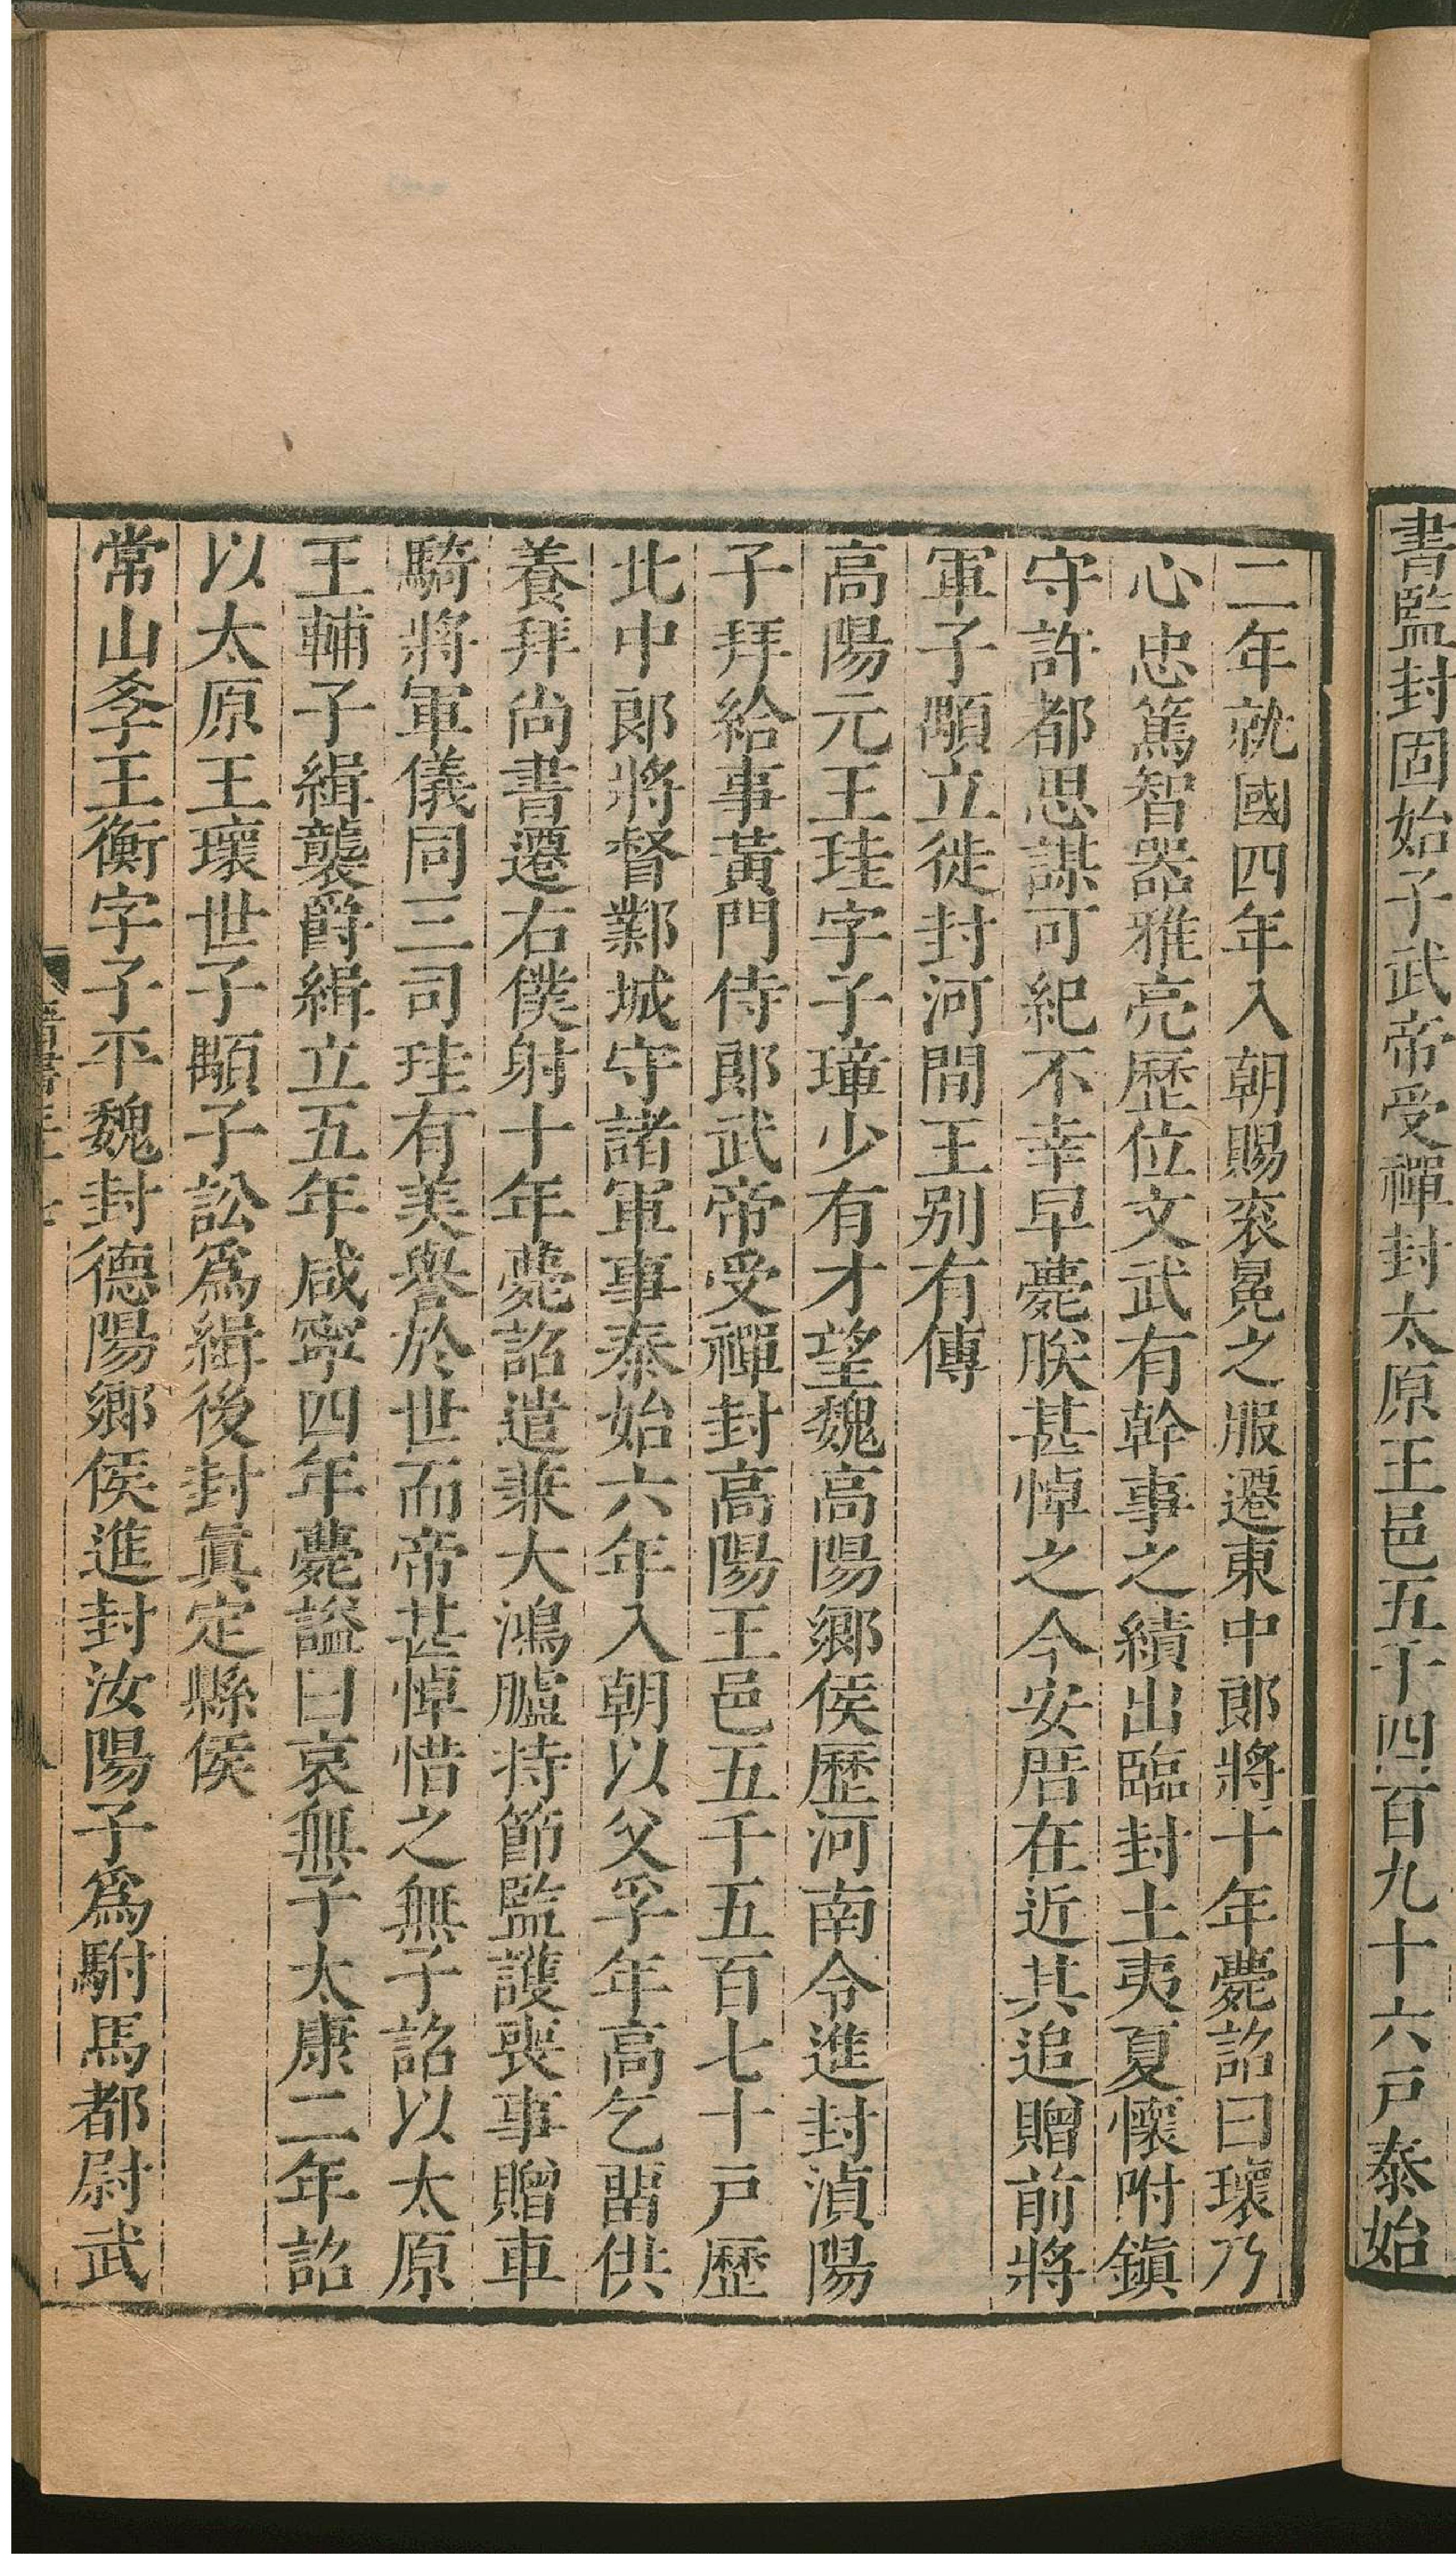 書監封固始子武帝受禪封太原王邑五千四百九十六戸泰始
二年就國四年入朝賜衮冕之服遷東中郎將十年薨詔曰瓌乃
心忠篤智器雅亮歷位文武有幹事之績出臨封土夷夏懷附鎭
守許都思謀可紀不幸早薨朕甚悼之今安厝在近其追贈前將
軍子顒立徙封河間王别有傳
高陽元王珪字子璋少有才望魏高陽鄉侯歷河南令進封湞陽
子拜給事黃門侍郎武帝受禪封高陽王邑五千五百七十戸歷
北中郎將督鄴城守諸軍事泰始六年入朝以父孚年高乞留供
養拜尚書遷右僕射十年薨詔遣兼大鴻臚持節監護喪事贈車
騎將軍儀同三司珪有美譽於世而帝甚悼惜之無子詔以太原
王輔子緝襲爵緝立五年咸寧四年薨謚曰哀無子太康二年詔
以太原王瓌世子顒子訟爲緝後封眞定縣侯
常山孝王衡字子平魏封德陽鄉侯進封汝陽子爲駙馬都尉武